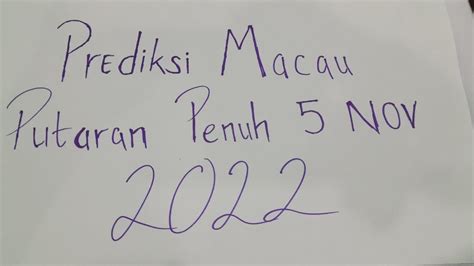 Prediksi Macau
Putaran Penuh 5 Nov
2022